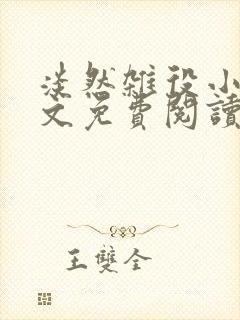 淡然雜役小
文免費閱讀
王雙全